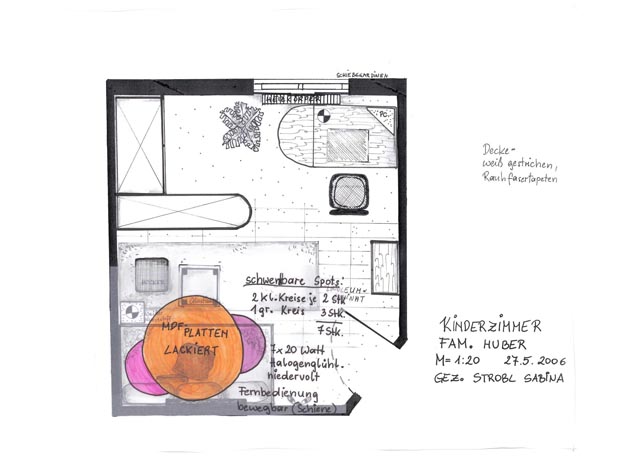 SCHIEBEGARDINEN
HEIZKÖRPER
PC
Decke-
weiß gestrichen,
Rauhfasertapeten
schwenkbare Spots:
2 kl. Kreise je 2 Stk.
1 gr. Kreis 3 Stk.
7 Stk.
MDF-PLATTEN
LACKIERT
7 x 20 Watt
Halogenglüht.
niedervolt
Fernbedienung
bewegbar (Schiene)
KINDERZIMMER
FAM. HUBER
M= 1:20 27.5.2006
GEZ. STROBL SABINA